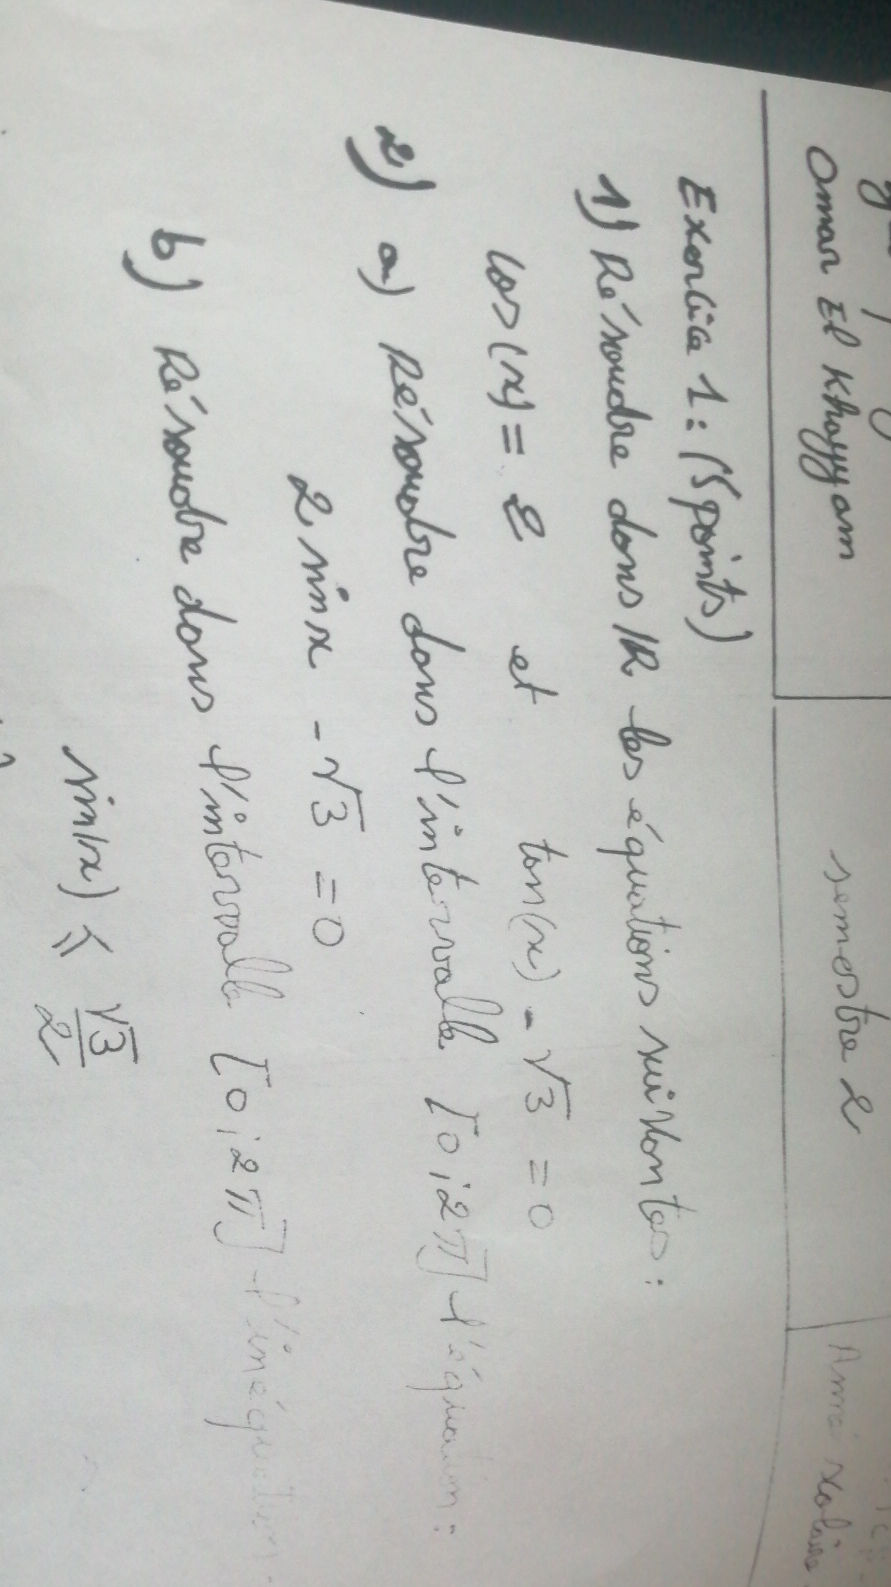 Omar El Khayyam semestre 2 Année scolaire
Exercice 1 : (5 points)
1) Résoudre dans IR les équations suivantes :
cos(x) = 2 et tan(x) - √3 = 0
2) a) Résoudre dans l'intervalle [0;2π] l'équation :
2 sin x - √3 = 0
b) Résoudre dans l'intervalle [0;2π] l'inéquation.
sin(x) ⩽ √3/2